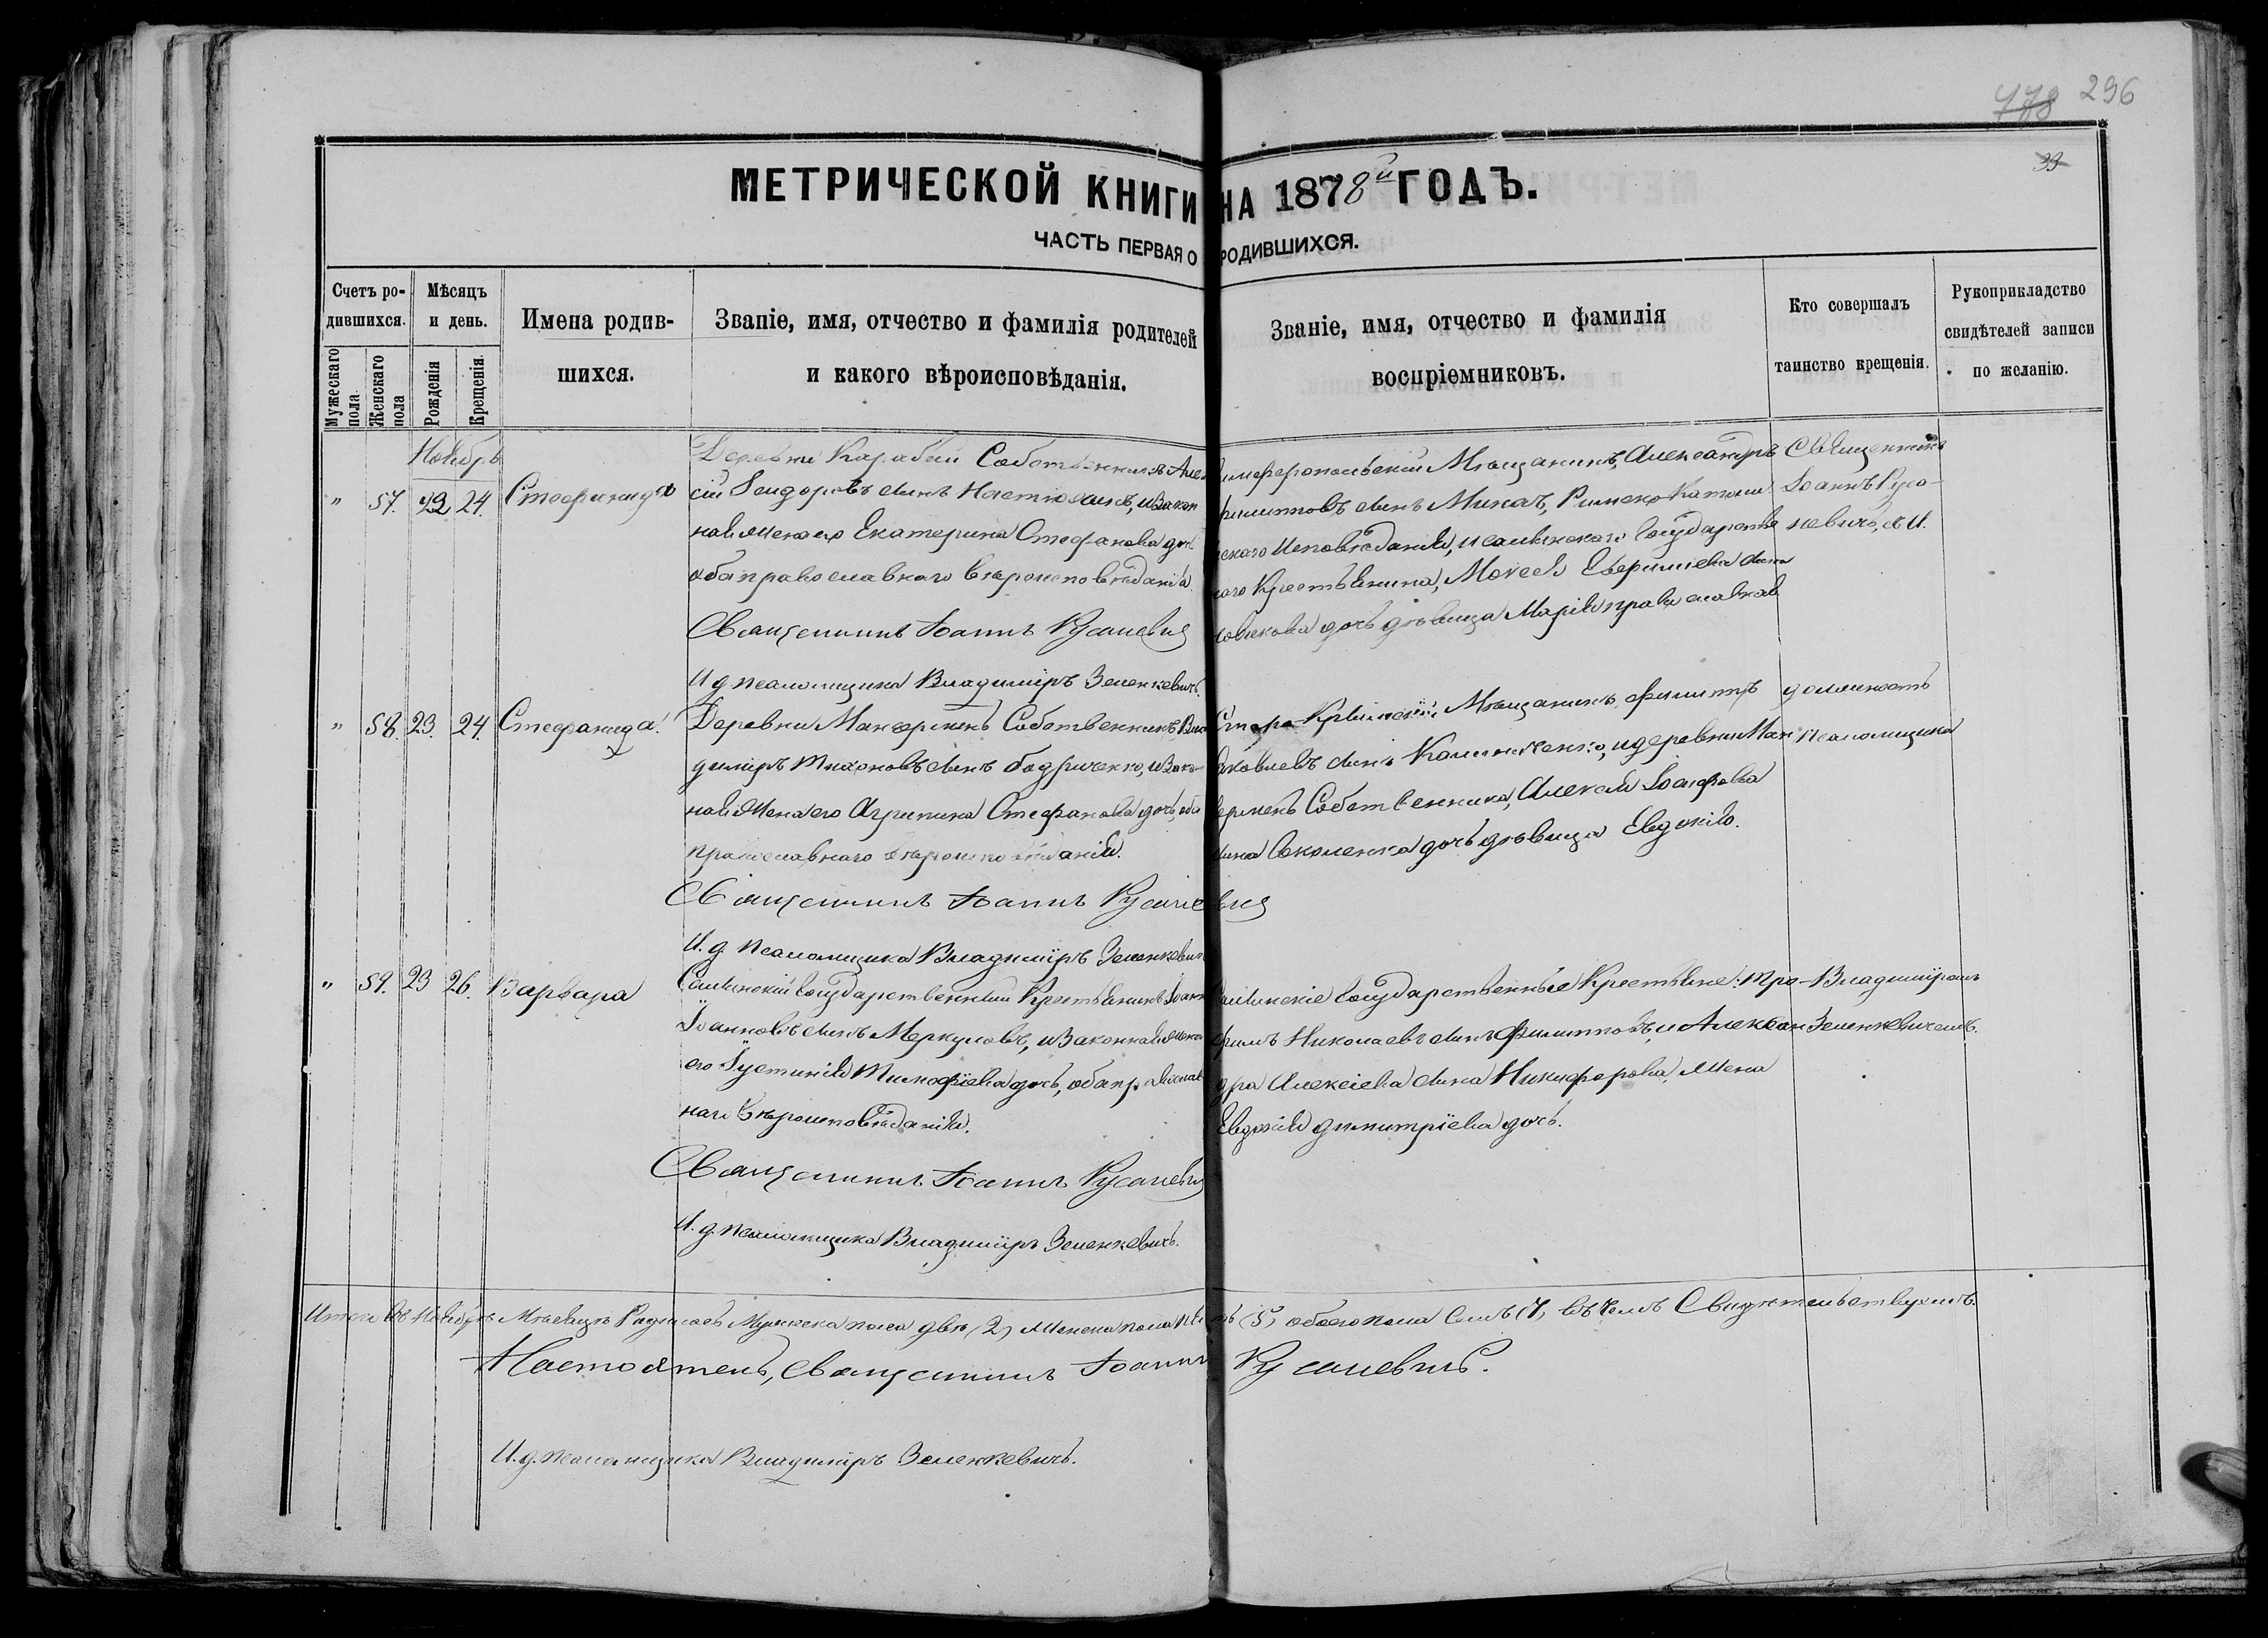 778 296
33
МЕТРИЧЕСКОЙ КНИГИ НА 1878й ГОДЪ.
ЧАСТЬ ПЕРВАЯ О РОДИВШИХСЯ.
Счетъ родившихся.
Мужескаго пола
Женскаго пола
Мѣсяцъ и день.
Рожденія
Крещенія.
Имена родившихся.
Званіе, имя, отчество и фамилія родителей
и какого вѣроисповѣданія.
Званіе, имя, отчество и фамилія
воспріемниковъ.
Кто совершалъ
таинство крещенія.
Рукоприкладство
свидѣтелей записи
по желанію.
Ноябрь
" 57. 24. Стефанида
Деревни Карабай Собственникъ Алек
сій сынъ и закон
ная жена его Екатерина Стефанова доч
оба православнаго вѣроисповѣданія.
Священникъ Іоаннъ Русаневич
И д псаломщика Владиміръ Зеленкевичъ.
имферопольскій Мѣщанинъ, Александръ
Филипповъ сынъ Римско-Католи
ческаго Исповѣданія, и Государствен
наго Крестьянина, Моисея сына
дочь дѣвица Марія православная
Священникъ
Іоаннъ Руса-
невичъ, съ И.
" 58. 23. 24. Стефанида.
Деревни Собственникъ Вла
диміръ Тихоновъ сынъ Бодриченко, и Закон
ная Жена его Агрипина Стефанова дочь, оба
православнаго вѣроисповѣданія.
Священникъ Іоаннъ Русаневич
И. д. псаломщика Владиміръ Зеленкевич
Старо-Крымскій Мѣщанинъ, Филиппъ
Яковлевъ сынъ Калиниченко, и деревни Ман
Собственника, Алексѣя Іоасафова
сына Соколенка дочь дѣвица Евдокія.
должность
псаломщика
" 59. 23 26. Варвара
Салынскій Государственный Крестьянинъ Іоанн
Іоанновъ сынъ Меркуловъ, и Законная жена
его Іустинія Тимофіева дочь, оба православ
наго вѣроисповѣданія.
Священникъ Іоаннъ Русаневич
И. д. псаломщика Владиміръ Зеленкевичъ.
Салынскіе Государственные Крестьяне: Тро-
фимъ Николаевъ сынъ Филипповъ, и Алексан
дра Алексіева сына Никифорова, Жена
Евдокія Димитріева дочь.
Владиміромъ
Зеленкевичемъ.
Итого въ Ноябрѣ Мѣсяцѣ Родилось Мужеска пола два (2) Женска пола пять (5) обоего пола Семь (7), въ чемъ Свидѣтельствуемъ.
Настоятель, Священникъ Іоаннъ Русаневичъ.
И. д. псаломщика Владиміръ Зеленкевичъ.